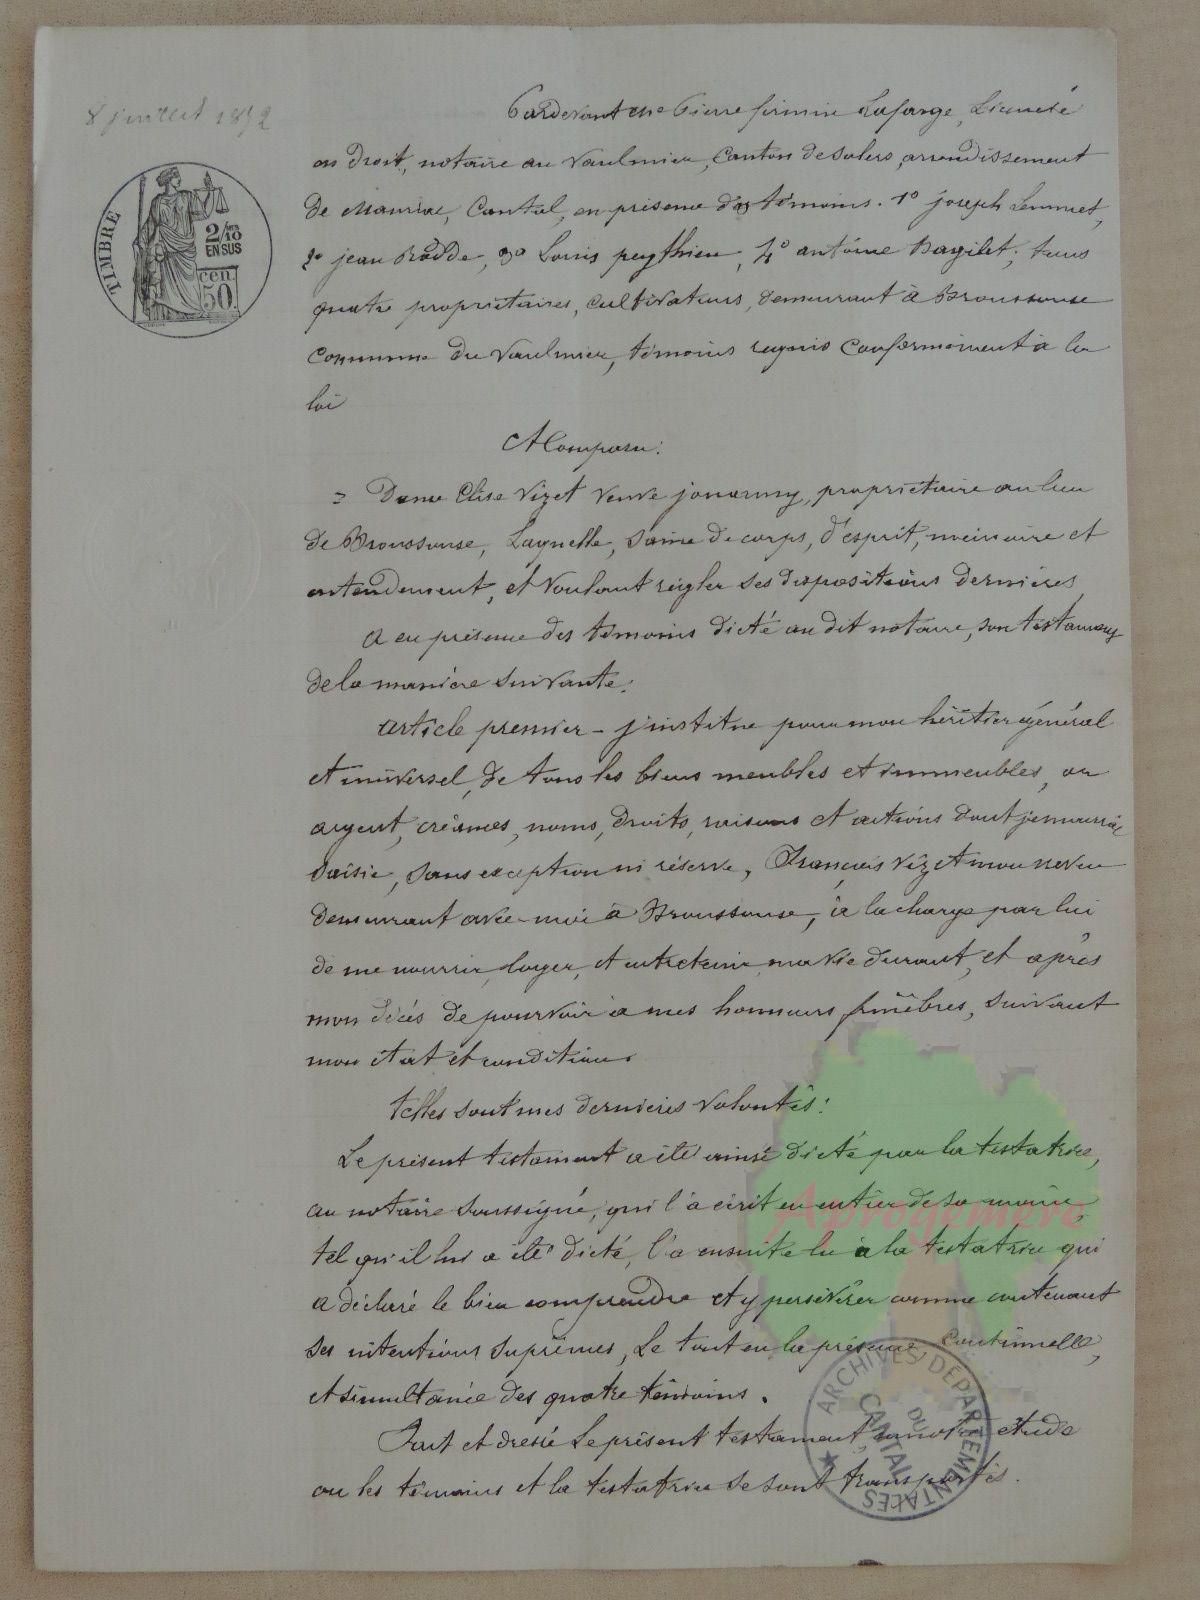 8 juillet 1892
TIMBRE
2/10
EN SUS
50 cen
Pardevant me Pierre firmin Lafarge, Licencié
en Droit, notaire au Vaulmier, Canton de Salers, arrondissement
de Mauriac, Cantal, en présence des témoins. 1o joseph Lemmet,
2o jean Rodde, 3o Louis peythieu, 4o antoine Bagilet, tous
quatre propriétaires, cultivateurs, demeurant à Broussouse
Commune du Vaulmier, témoins requis Conformément à la
loi
A Comparu:
= Dame Elise Vizet veuve jouanny, propriétaire au lieu
de Broussouse, Laquelle, saine de corps, d'esprit, mémoire et
entendement, et voulant régler ses dispositions dernières
a en présence des témoins dicté au dit notaire, son testament
de la manière suivante:
article premier - j'institue pour mon héritier général
et universel, de tous les biens meubles et immeubles, or
argent, créances, noms, droits, raisons et actions dont je mourrai
saisie, sans exception ni réserve, François Vizet mon neveu
demeurant avec moi à Broussouse, à la charge par lui
de me nourrir, loger, et entretenir, ma vie durant, et après
mon décès de pourvoir à mes honneurs funèbres, suivant
mon état et condition.
telles sont mes dernières volontés:
Le présent testament a été ainsi dicté par la testatrice,
au notaire soussigné, qui l'a écrit en entier de sa main,
tel qu'il lui a été dicté, l'a ensuite lu à la testatrice qui
a déclaré le bien comprendre et y persévérer comme contenant
ses intentions suprêmes, Le tout en la présence Continuelle,
et simultanée des quatre témoins.
Fait et dressé Le présent testament, en notre étude
ou les témoins et la testatrice se sont transportés.
Aprogemere
ARCHIVES DÉPARTEMENTALES
DU
CANTAL